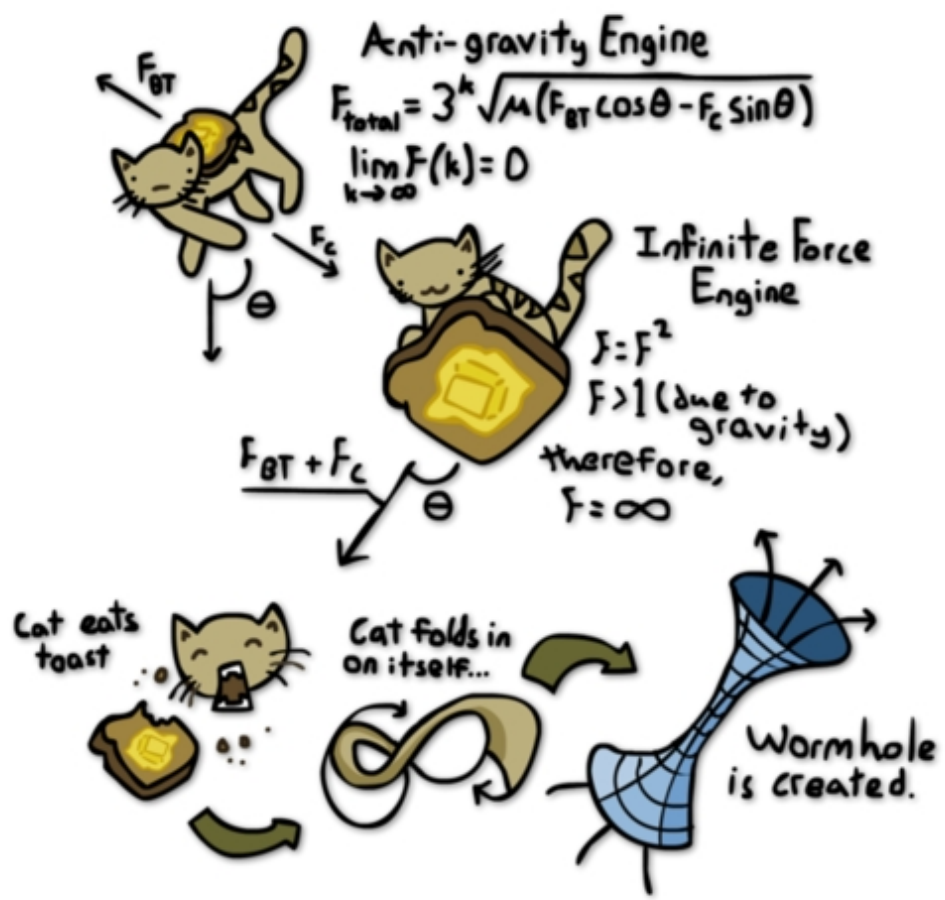 Anti-gravity Engine
F_BT
F_total = 3^k √μ(F_BT cosθ - F_c sinθ)
lim F(k) = 0
k→∞
F_c
θ
Infinite Force
Engine
F = F²
F > 1 (due to
gravity)
therefore,
F = ∞
F_BT + F_c
θ
Cat eats
toast
Cat folds in
on itself...
Wormhole
is created.